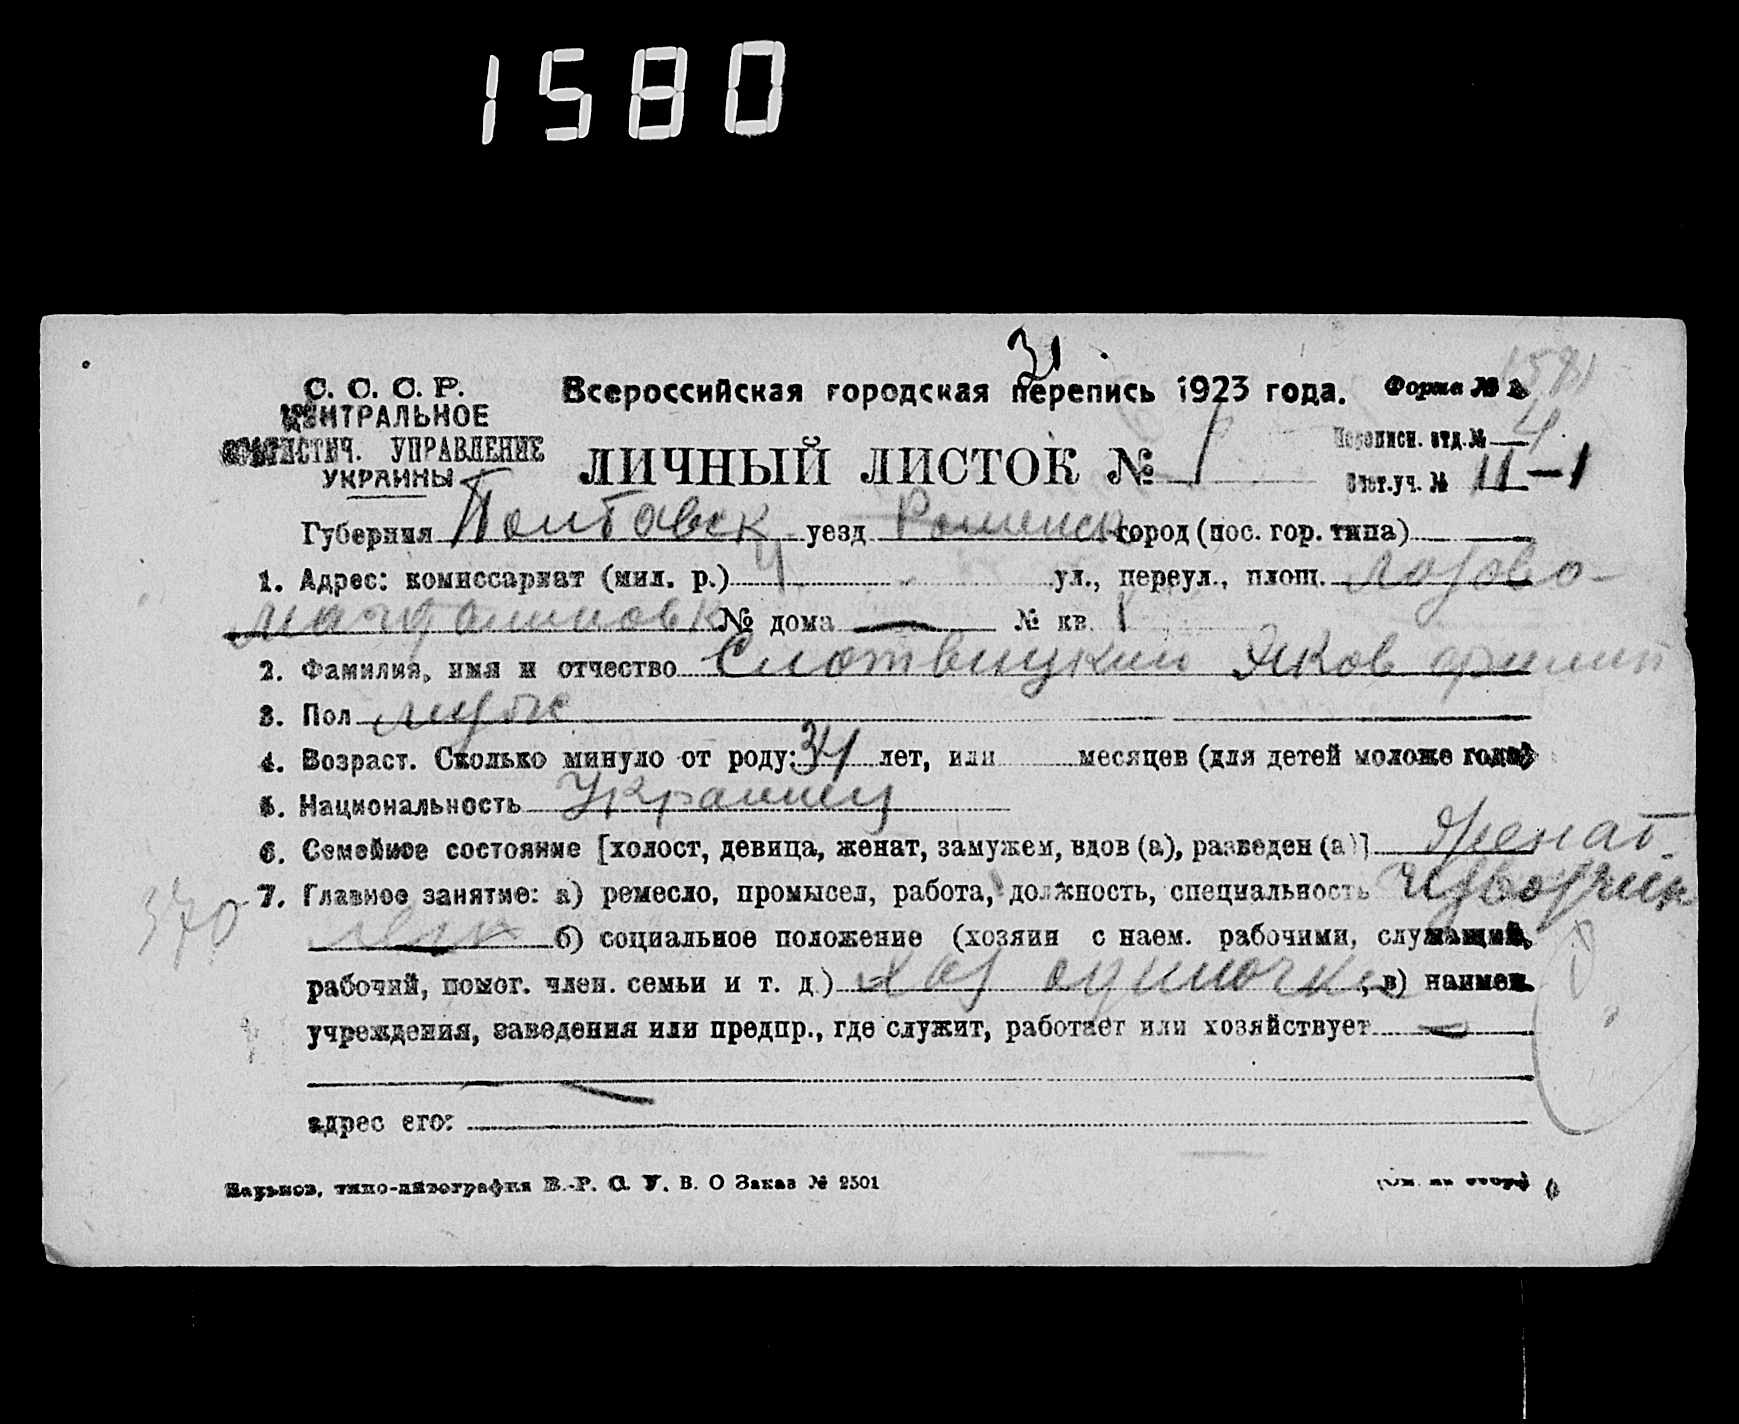 1580
31
С. С. С. Р.
ЦЕНТРАЛЬНОЕ
СТАТИСТИЧ. УПРАВЛЕНИЕ
УКРАИНЫ
Всероссийская городская перепись 1923 года. Форма № 2
ЛИЧНЫЙ ЛИСТОК № 1
Переписн. отд. № 4
Счет. уч. № II-1
Губерния Полтавск уезд Роменск город (пос. гор. типа)
1. Адрес: комиссариат (мил. р.) 4 ул., переул., площ. Лозово-
№ дома — № кв. 1
2. Фамилия, имя и отчество Слотвицкий Яков Филип
3. Пол муж
4. Возраст. Сколько минуло от роду: 34 лет, или месяцев (для детей моложе года)
5. Национальность Украинец
6. Семейное состояние [холост, девица, женат, замужем, вдов (а), разведен (а)] Женат.
7. Главное занятие: а) ремесло, промысел, работа, должность, специальность Извозчик
370
б) социальное положение (хозяин с наем. рабочими, служащий,
рабочий, помог. член. семьи и т. д.) Хоз одиночка, в) наимен.
учреждения, заведения или предпр., где служит, работает или хозяйствует —
адрес его:
Харьков, типо-литография В.-Р. С. У. В. О Заказ № 2501